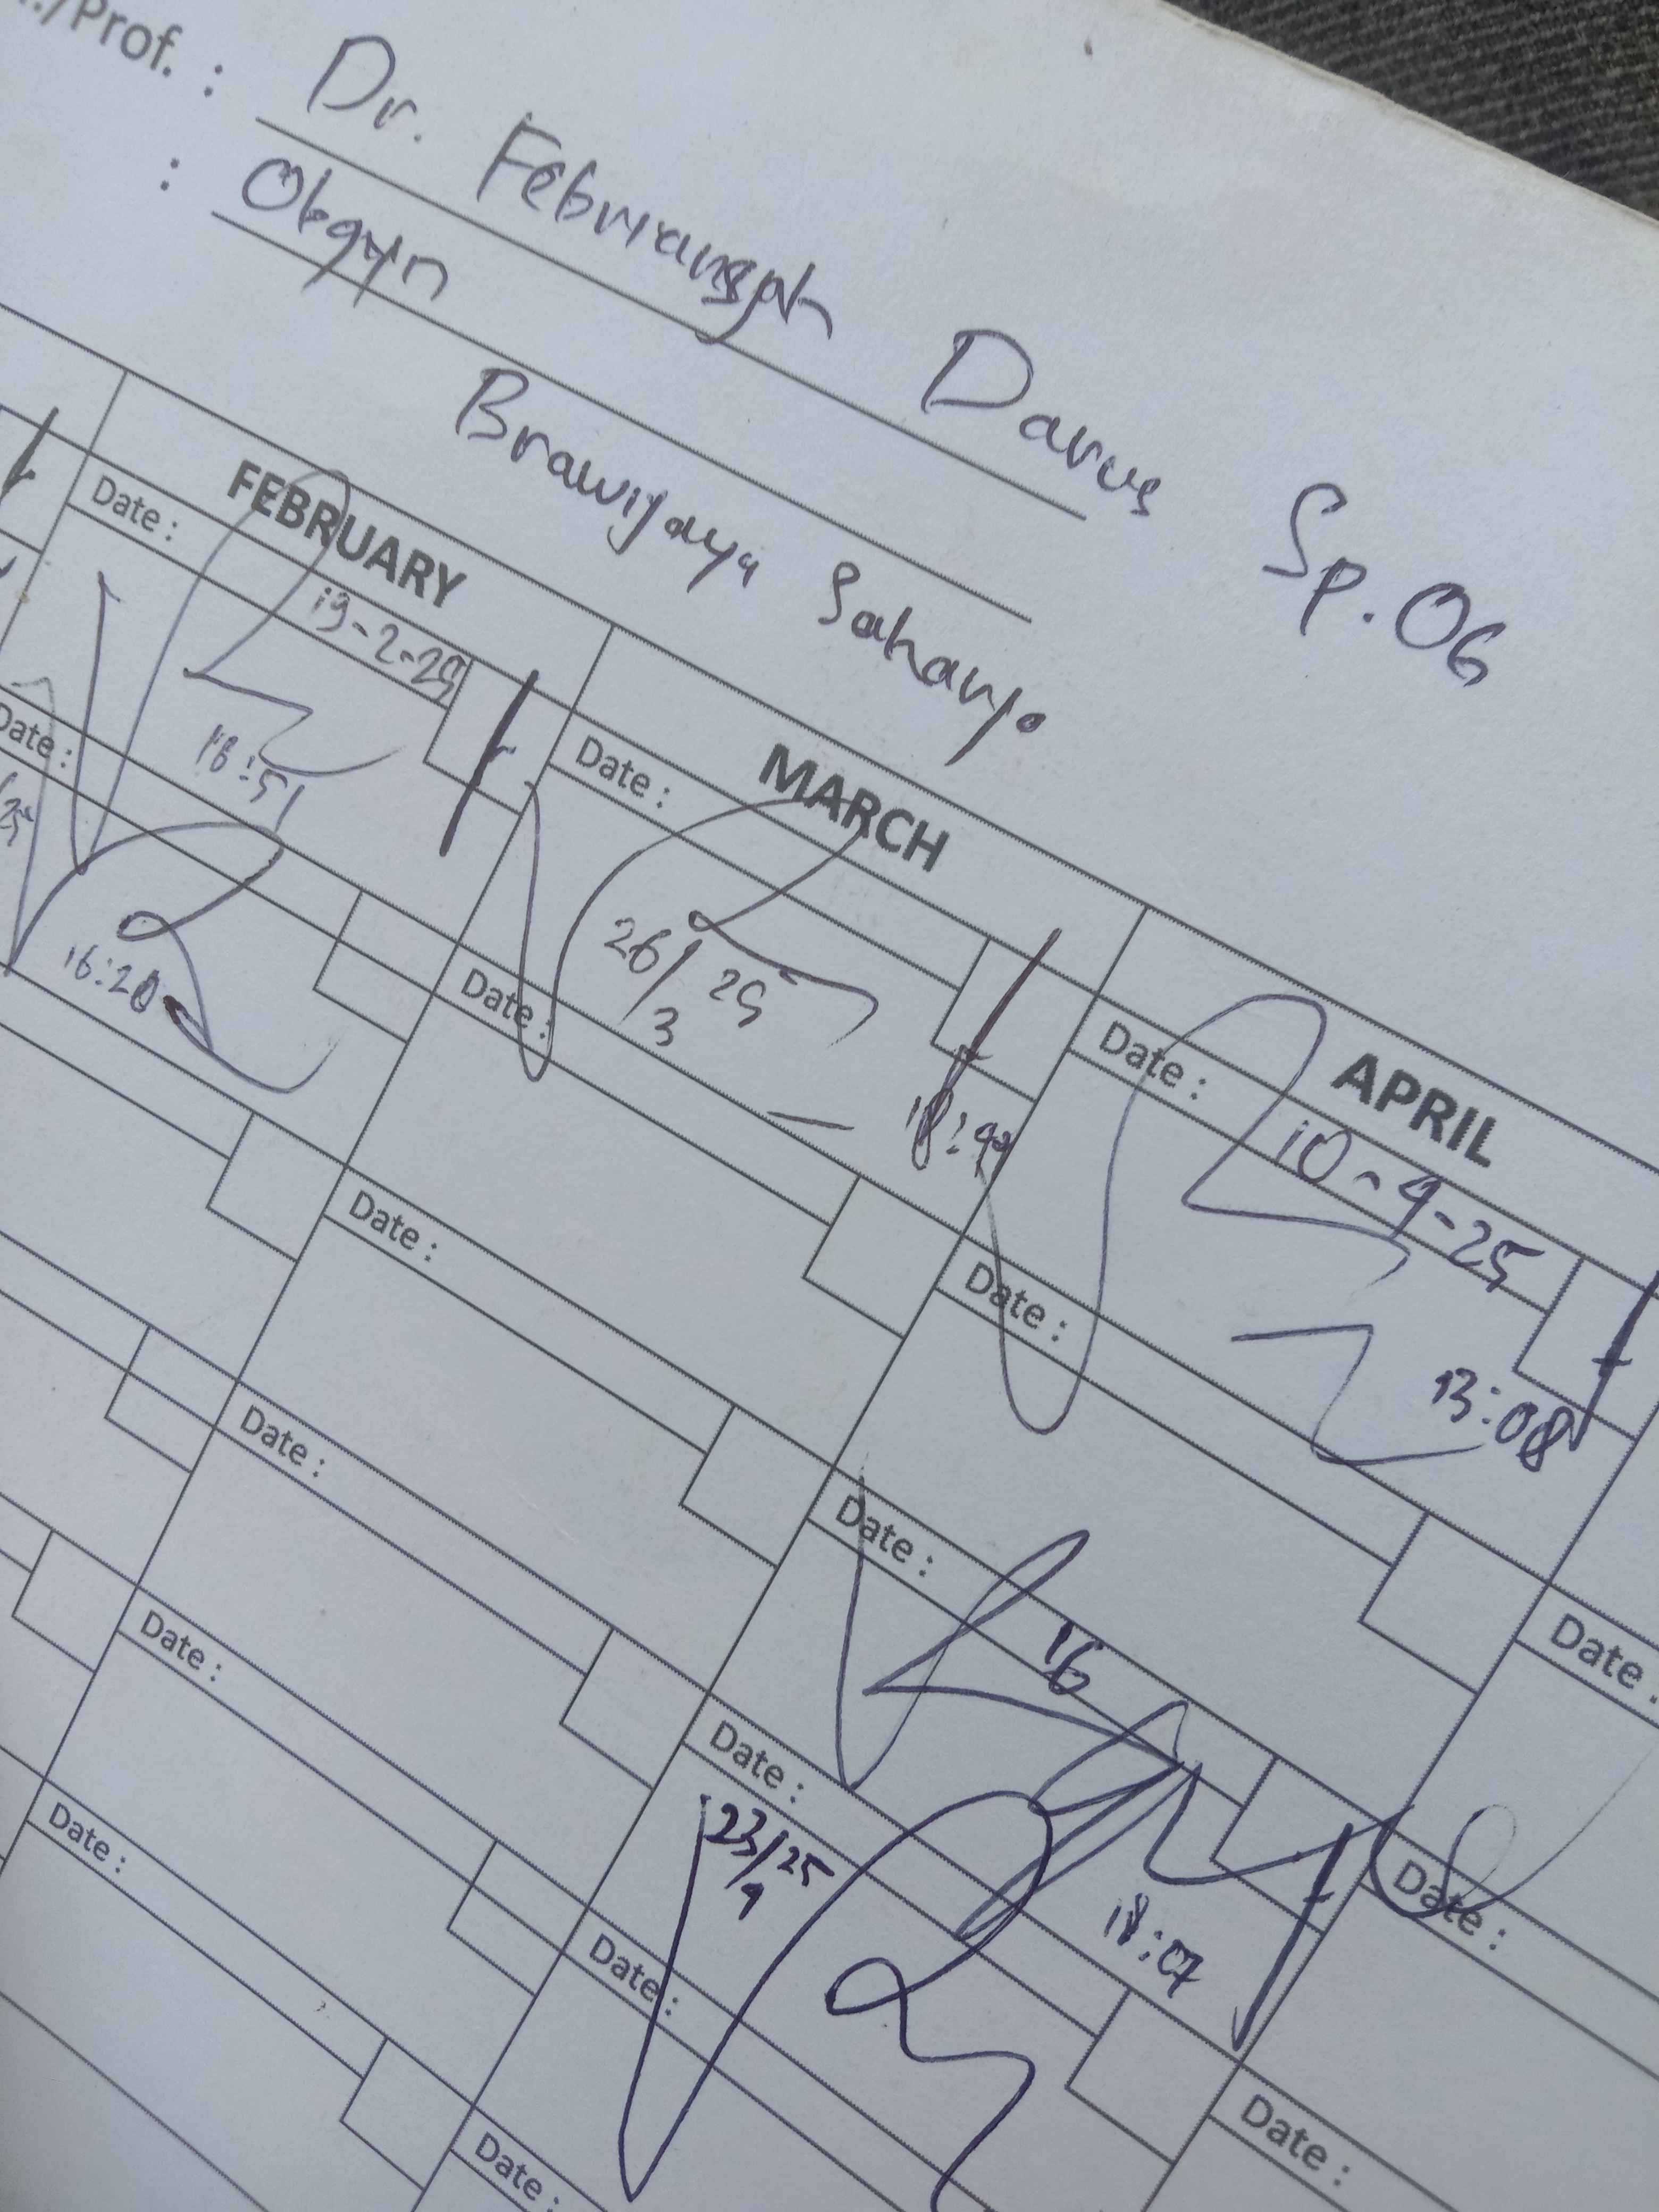 Prof. : Dr. Febriansyah Darus Sp.OG
: Obgyn
Brawijaya Saharjo
FEBRUARY
MARCH
APRIL
Date : 19-2-25
18:51
Date :
16:20
Date :
26/3 25
Date : 10-4-25
13:08
Date :
Date :
Date :
Date :
Date : 16
18:07
Date :
Date :
23/4 25
Date :
Date :
Date :
Date :
Date :
Date :